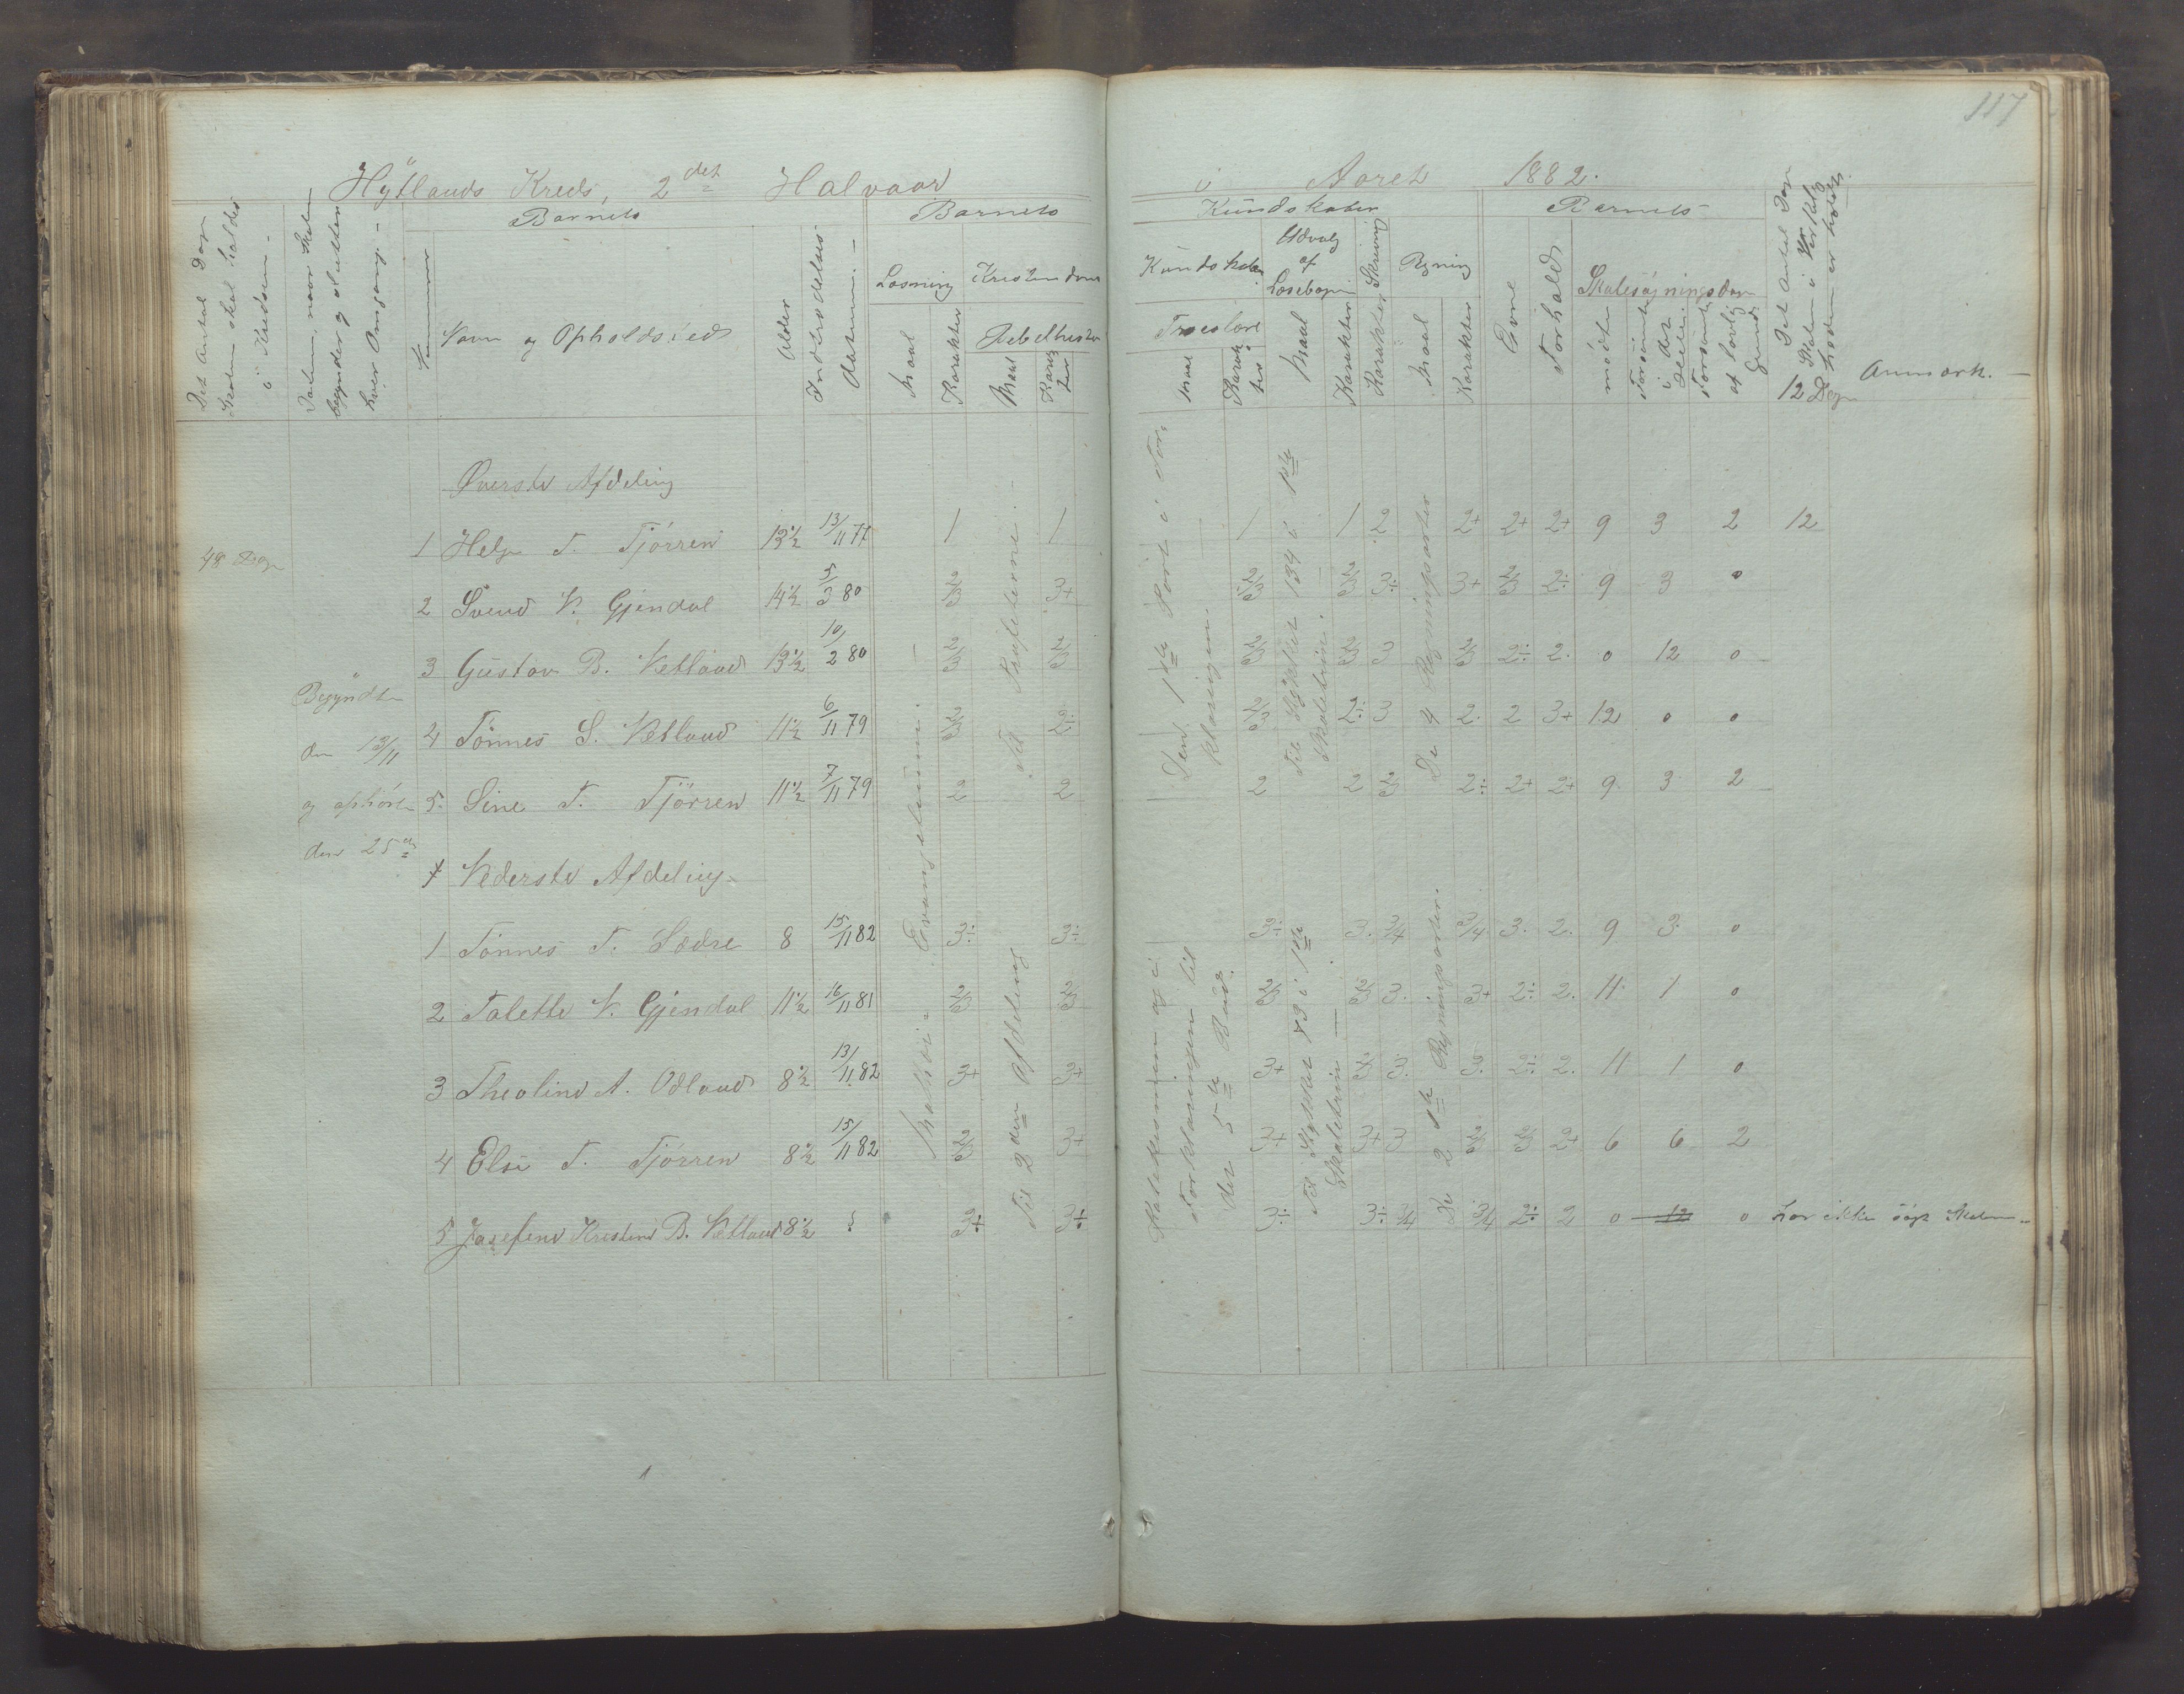 117
Hÿtlands Kreds, 2det Halvaar i Aaret 1882.
Det Antal Dage Skolen skal holdes i Kredsen.
Datum, naar Skolen begynder og slutter hver Omgang.
Barnets
Nummer
Navn og Opholdssted
Alder
Indtrædelses datum.
Barnets
Læsning
Maal
Karakter
Kristendom
Bibelhistorie
Maal
Karakter
Kundskaber
Kundskaber
Troeslære
Maal
Karakter
Udvalg af Læsebogen
Maal
Karakter
Skrivning
Karakter
Regning
Maal
Karakter
Barnets
Evne
Forhold
Skolesøgningsdage
mødte
Forsømte i det Hele
Forsømte af lovlig Grund
Det Antal Dage Skolen i Virkeligheden er holdt.
12 Dage
Anmærk.
48 Dage
Begÿndte
den 13/11
og ophørte
den 25de
Øverste Afdeling
1 Helge T. Tjørren 13½ 13/11 77 1 1 1 1 2 2+ 2+ 2+ 9 3 2 12
2 Svend N. Gjendal 14½ 5/3 80 2/3 3+ 2/3 2/3 3÷ 3+ 2/3 2÷ 9 3 0
3 Gustav B. Vetland 13½ 10/2 80 2/3 2/3 2/3 2/3 3 2/3 2÷ 2. 0 12 0
4 Tønnes S. Vetland 11½ 6/11 79 2/3 2÷ 2/3 2÷ 3 2. 2 3+ 12 0 0
5. Sine T. Tjørren 11½ 7/11 79 2 2 2 2 2/3 2÷ 2+ 2+ 9 3 2
Nederste Afdeling
1 Tønnes T. Sædre 8 15/11 82 3÷ 3÷ 3÷ 3. 3/4 3/4 3. 2. 9 3 0
2 Talette N. Gjendal 11½ 16/11 81 2/3 2/3 2/3 2/3 3. 3+ 2÷ 2. 11 1 0
3 Theoline A. Ødland 8½ 13/11 82 3+ 3+ 3+ 2/3 3. 3. 2÷ 2. 11 1 0
4 Else T. Tjørren 8½ 15/11 82 2/3 3+ 3+ 3+ 3 2/3 2/3 2+ 6 6 2
5 Josefine Kristine B. Vetland 8½ 3÷ 3÷ 3÷ 3÷ 3/4 3/4 2÷ 2 0 12 0 har ikke søgt Skolen
Mathæi Evangelium.
Til Profeterne.
Til 2den Afdeling
Den 1ste Part i Forklaringen.
Til Stykket 134 i 1ste Skoletrin.
De 4 Regningsarter
Katekismen og i Forklaringen til det 5te Bud.
Til Stykket 73 i 1ste Skoletrin
De 2 1ste Regningsarter.